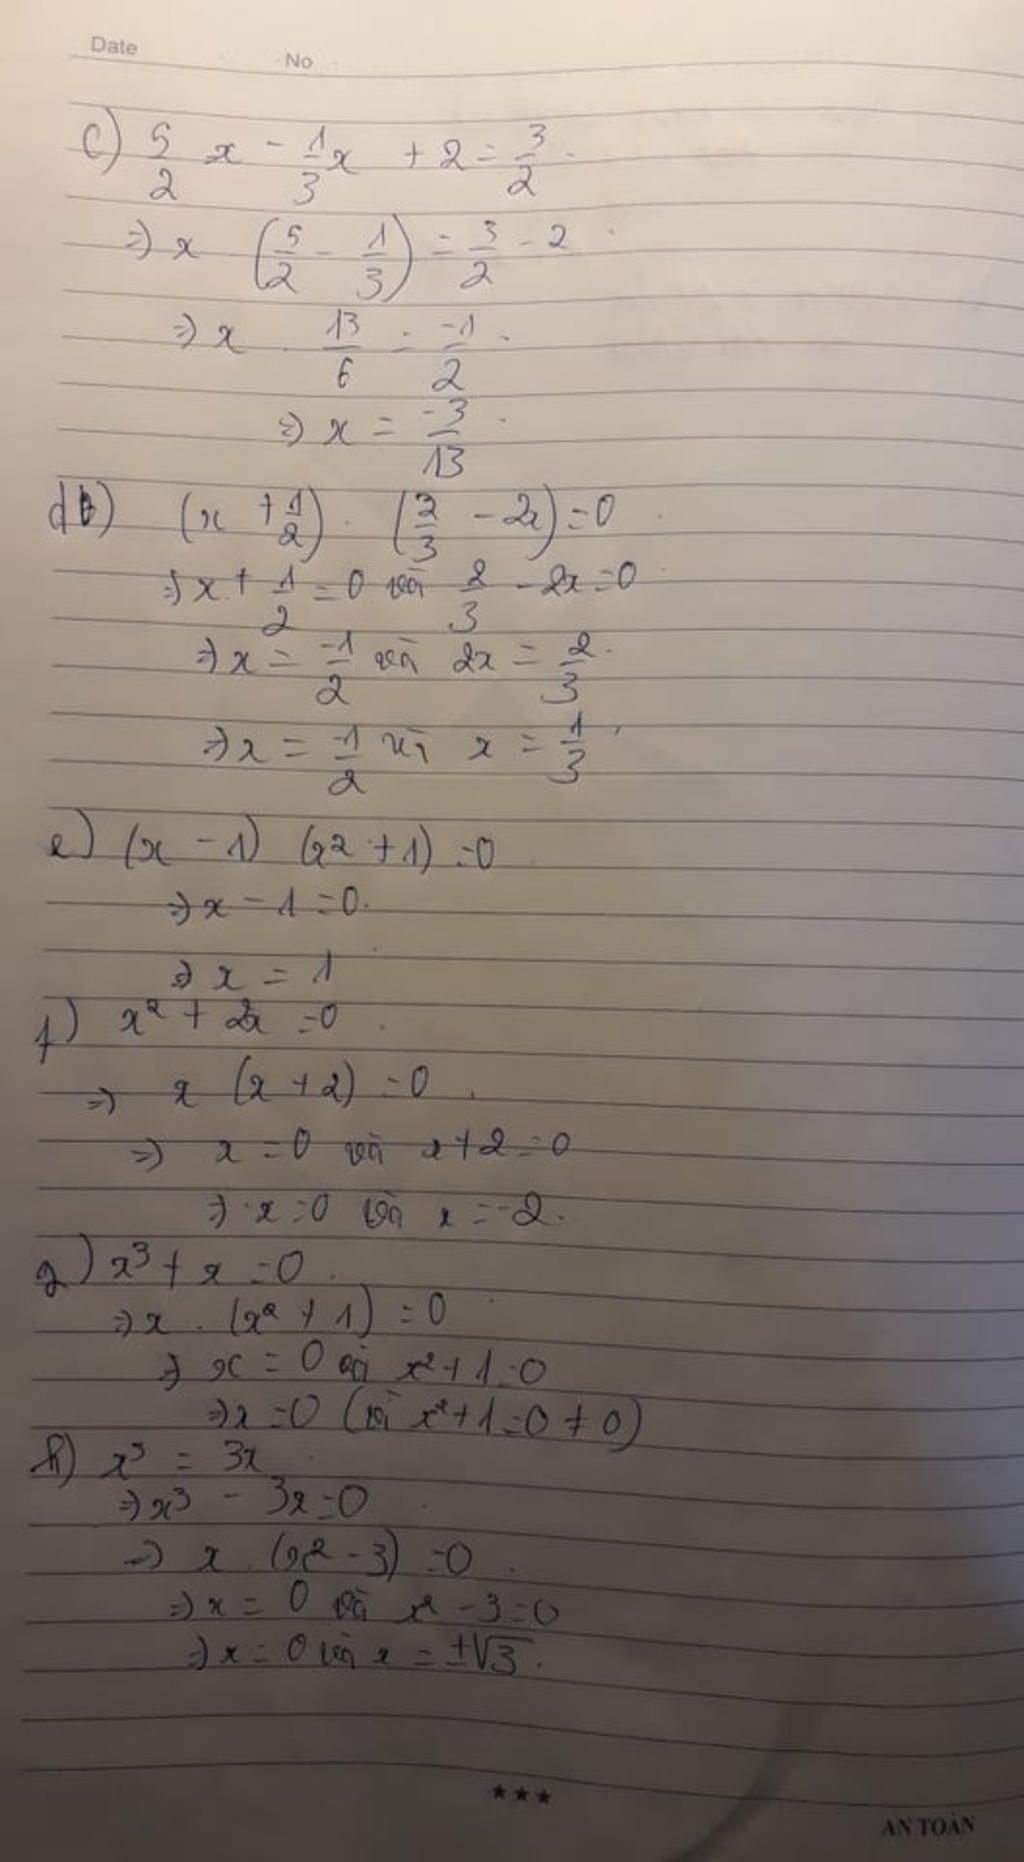 Date
No
c) 5/2 x - 1/3 x + 2 = 3/2
=> x (5/2 - 1/3) = 3/2 - 2
=> x . 13/6 = -1/2
=> x = -3/13
d) (x + 1/2) . (2/3 - 2x) = 0
=> x + 1/2 = 0 và 2/3 - 2x = 0
=> x = -1/2 và 2x = 2/3
=> x = -1/2 và x = 1/3
e) (x - 1) (x² + 1) = 0
=> x - 1 = 0
=> x = 1
f) x² + 2x = 0
=> x (x + 2) = 0
=> x = 0 và x + 2 = 0
=> x = 0 và x = -2
g) x³ + x = 0
=> x . (x² + 1) = 0
=> x = 0 và x² + 1 = 0
=> x = 0 (và x² + 1 = 0 ≠ 0)
h) x³ = 3x
=> x³ - 3x = 0
=> x . (x² - 3) = 0
=> x = 0 và x² - 3 = 0
=> x = 0 và x = ±√3.
★★★
AN TOÀN